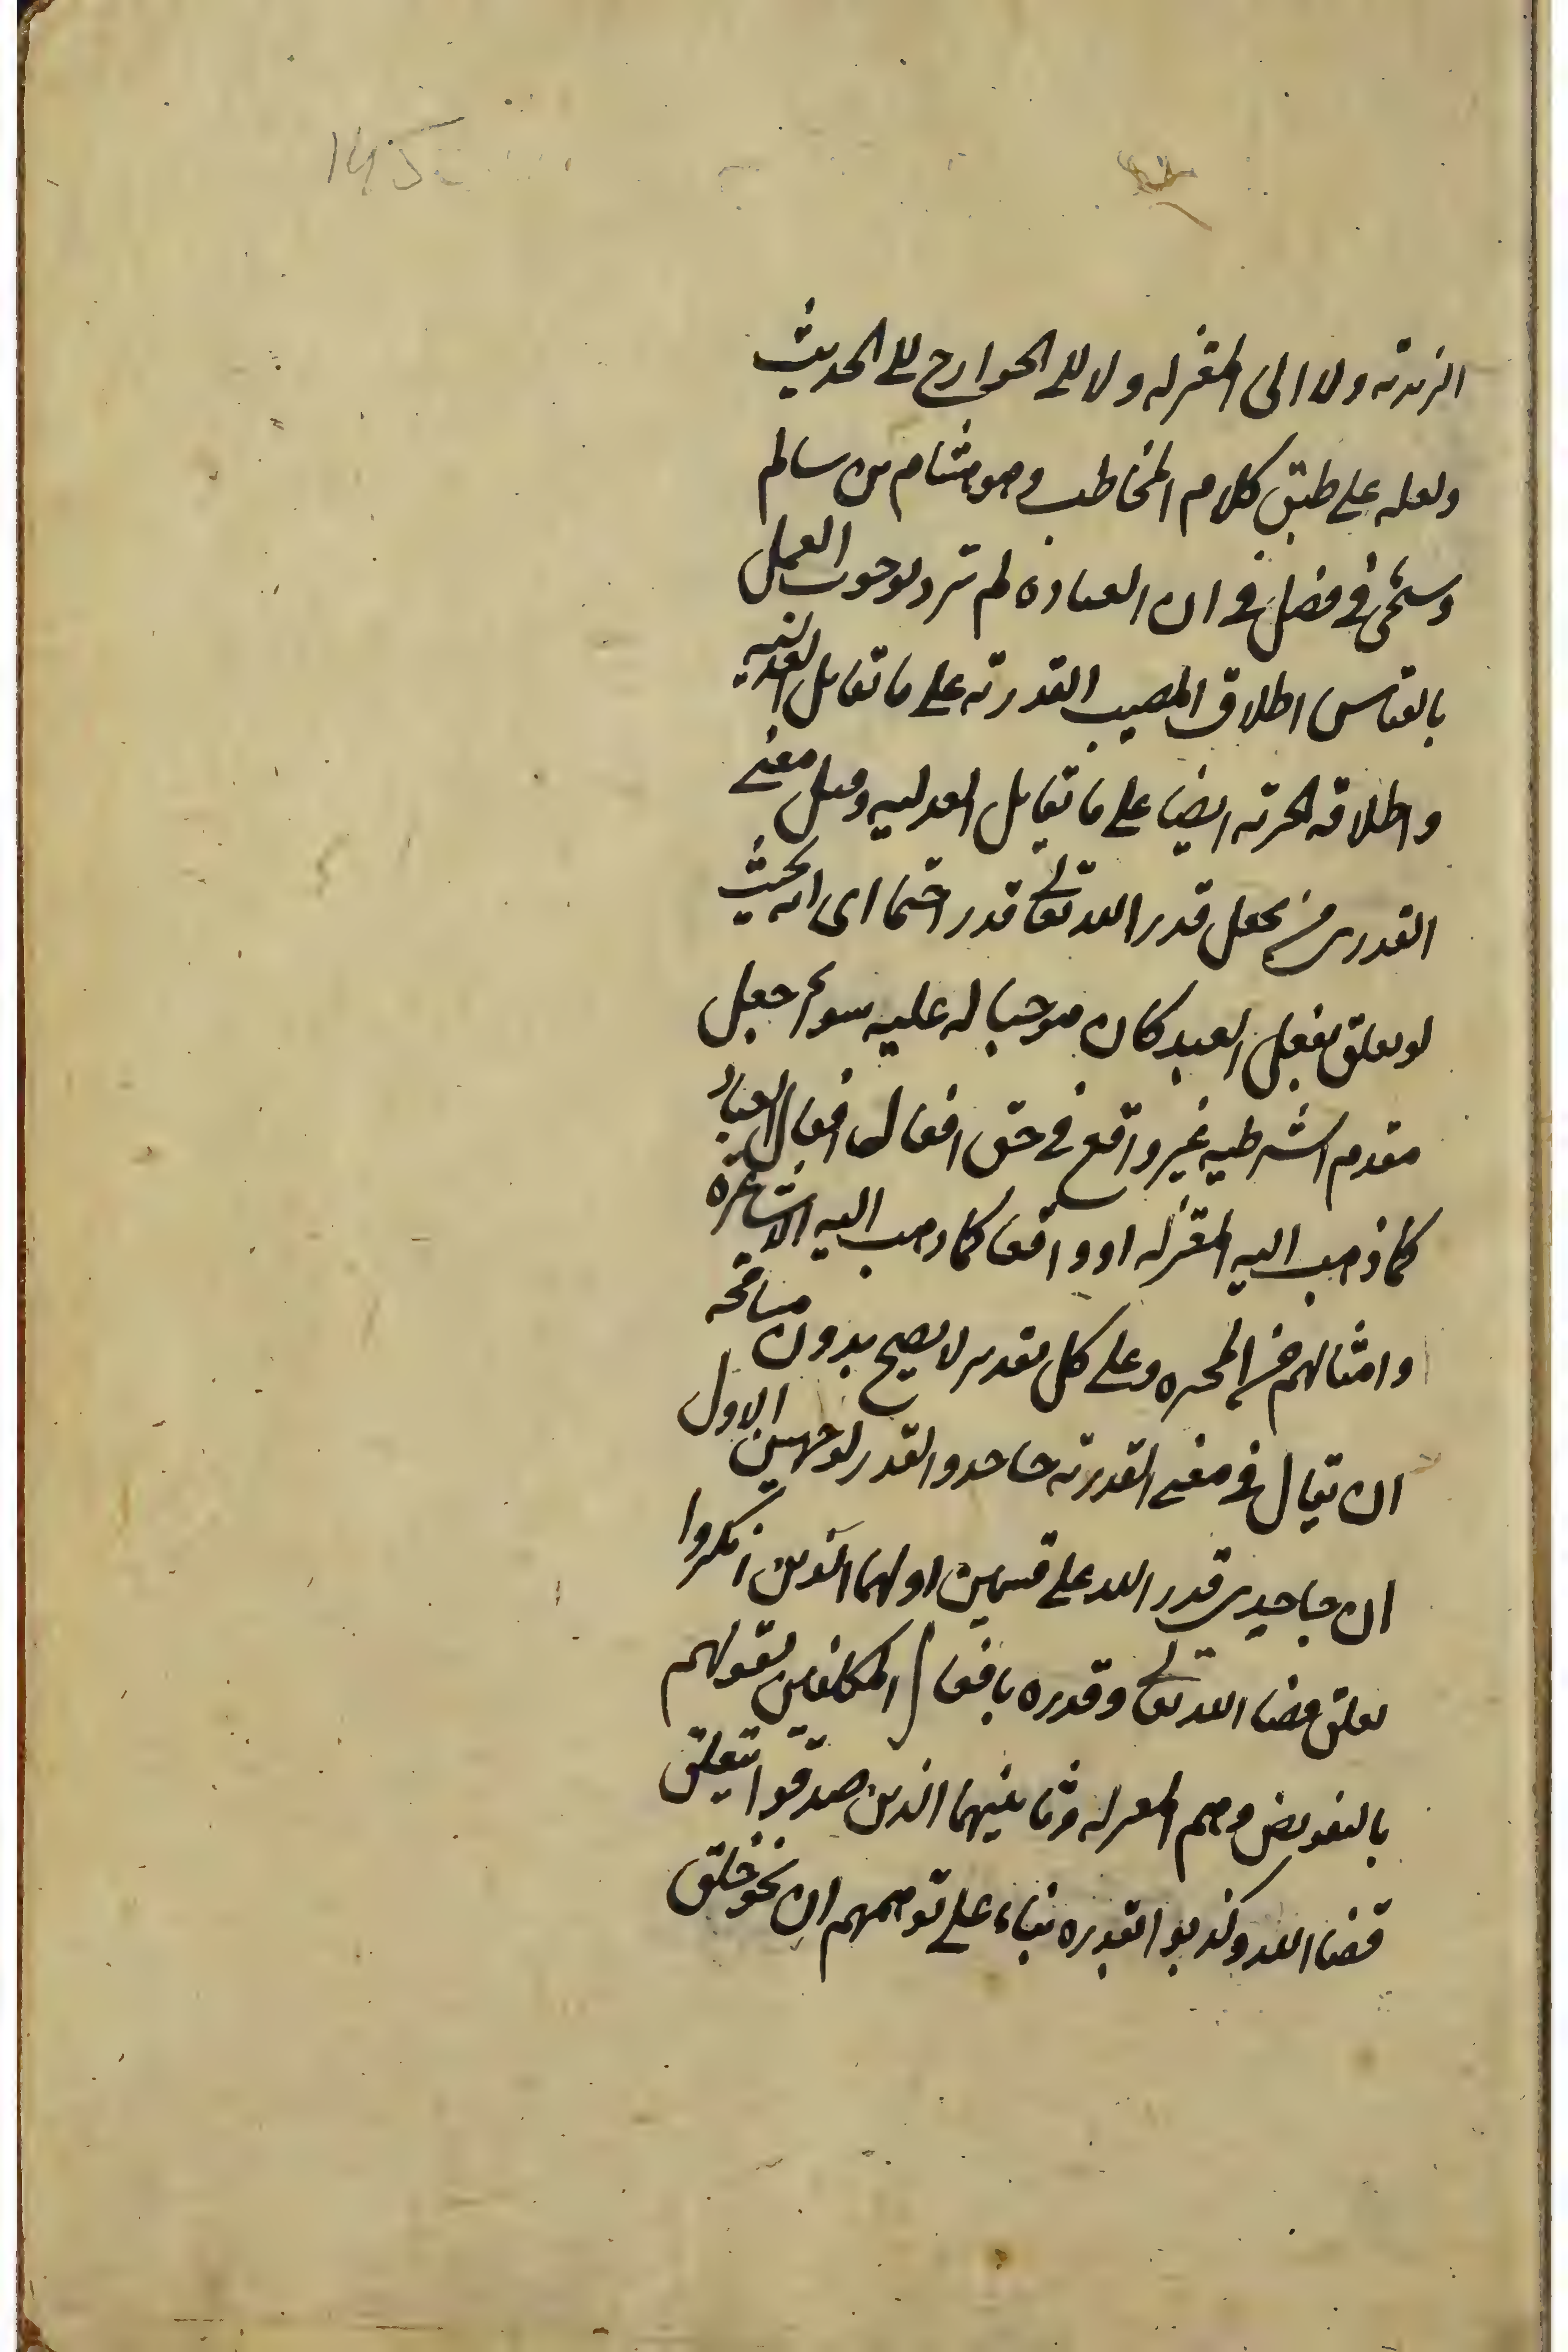 الزيدية ولا الى المعتزلة ولا الى الخوارج الى الحديث
ولعله على طبق كلام المخاطب وهو هشام بن سالم
وسيجئ في فصل في ان العبادة لم ترد لوجوب العمل
بالقياس اطلاق المصيب القدرية على ما تقابل العدلية
واطلاقه الجبرية ايضا على ما تقابل العدلية وقيل معنى
القدري من يجعل قدر الله تعالى قدرا حتما اى انه بحيث
لو تعلق بفعل العبد كان موجبا له عليه سواء جعل
مقدم الشرطيه غير واقع في حق افعال افعال العباد
كما ذهب اليه المعتزلة او واقعا كما ذهب اليه الاشاعرة
وامثالهم من المجبره وعلى كل تقدير لا يصح بدون مسامحه
ان يقال في معنى القدرية جاحدو القدر لوجهين الاول
ان جاحدي قدر الله على قسمين اولهما الذين انكروا
تعلق قضا الله تعالى وقدره بافعال المكلفين لقولهم
بالتفويض وهم المعتزلة وثانيهما الذين صدقوا بتعلق
قضا الله وكذبوا القدره بناء على توهمهم ان نحو خلق